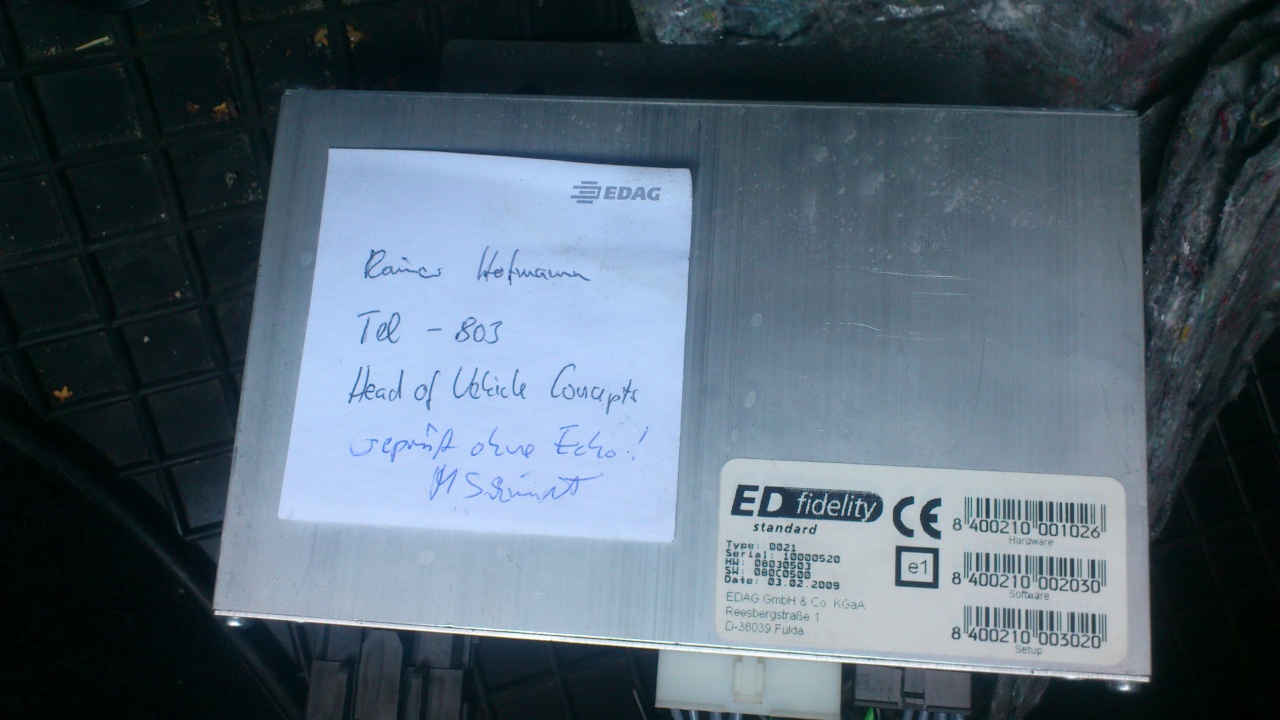 EDAG
Rainer Hofmann
Tel - 803
Head of Vehicle Concepts
geprüft ohne Echo!
M
ED fidelity
standard
Type: 0021
Serial: 10000520
HW: 08030503
SW: 080C0500
Date: 03.02.2009
EDAG GmbH & Co. KGaA
Reesbergstraße 1
D-36039 Fulda
CE
e1
8 400210 001026
Hardware
8 400210 002030
Software
8 400210 003020
Setup